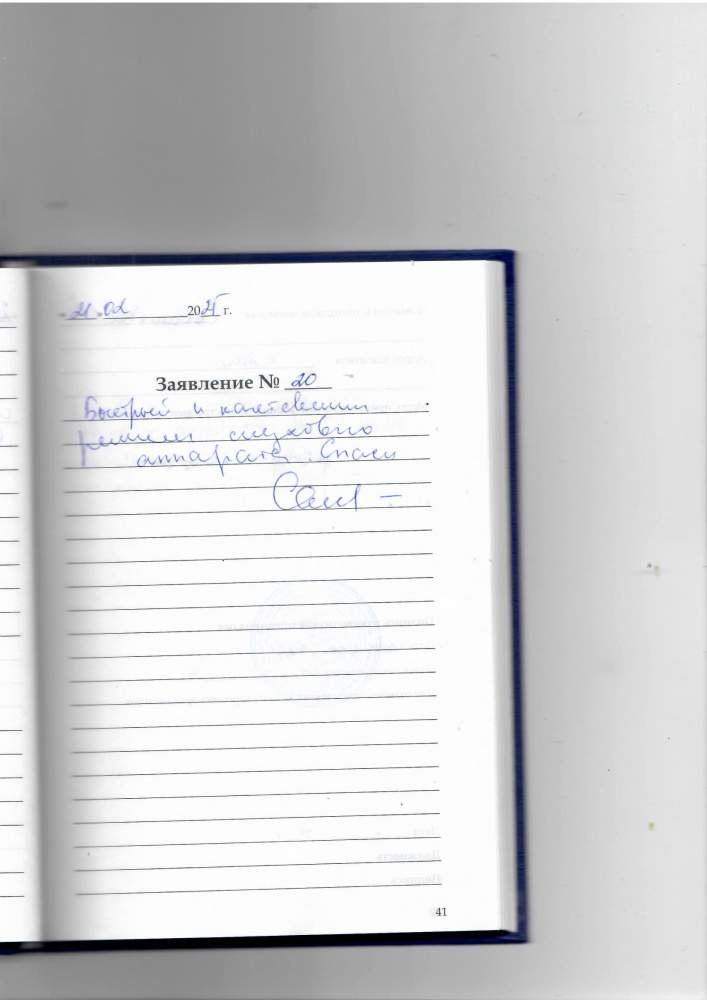 21.02 2025 г.
Заявление № 20
Быстрый и качественный
ремонт слухового
аппарата. Спаси
41